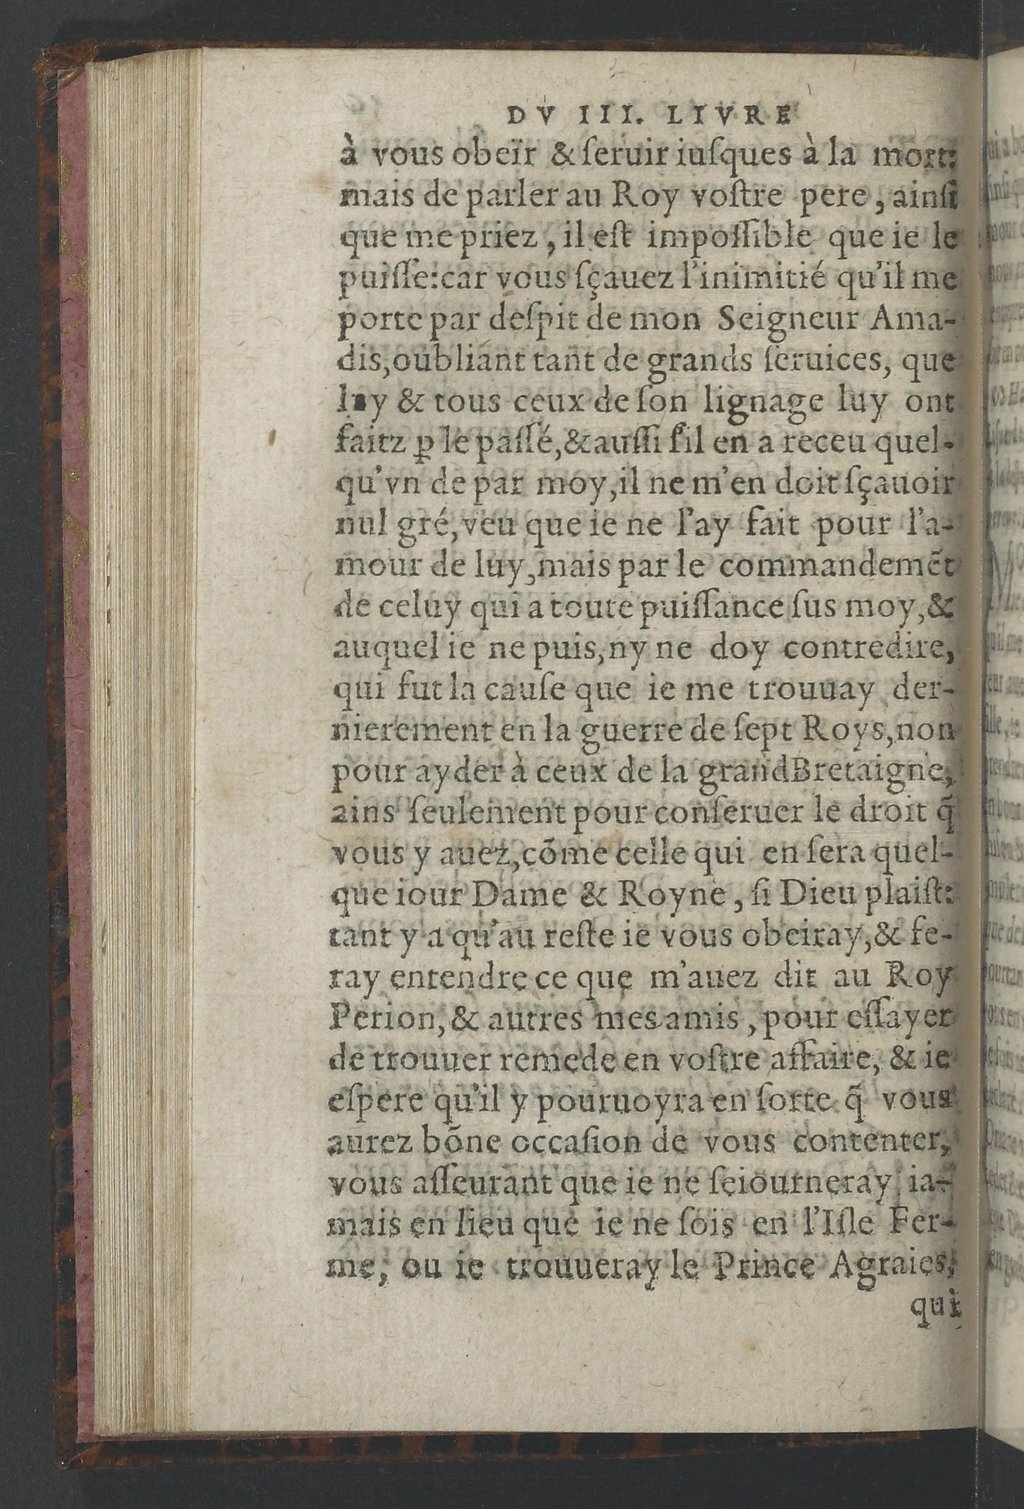 DV III. LIVRE
à vous obeïr & ſeruir iuſques à la mort:
mais de parler au Roy voſtre pere, ainſi
que me priez, il eſt impoſſible que ie le
puiſſe: car vous ſçauez l'inimitié qu'il me
porte par deſpit de mon Seigneur Ama-
dis, oubliant tant de grands ſeruices, que
luy & tous ceux de ſon lignage luy ont
faitz ꝑ le paſſé, & auſſi ſ'il en a receu quel-
qu'vn de par moy, il ne m'en doit ſçauoir
nul gré, veu que ie ne l'ay fait pour l'a-
mour de luy, mais par le commandemẽt
de celuy qui a toute puiſſance ſus moy, &
auquel ie ne puis, ny ne doy contredire,
qui fut la cauſe que ie me trouuay der-
nierement en la guerre de ſept Roys, non
pour ayder à ceux de la grand Bretaigne,
ains ſeulement pour conſeruer le droit q̃
vous y auez, cõme celle qui en ſera quel-
que iour Dame & Royne, ſi Dieu plaiſt:
tant y a qu'au reſte ie vous obeiray, & fe-
ray entendre ce que m'auez dit au Roy
Perion, & autres mes amis, pour eſſayer
de trouuer remede en voſtre affaire, & ie
eſpere qu'il y pouruoyra en ſorte q̃ vous
aurez bõne occaſion de vous contenter,
vous aſſeurant que ie ne ſeiourneray ia-
mais en lieu que ie ne ſois en l'Iſle Fer-
me, ou ie trouueray le Prince Agraies,
qui